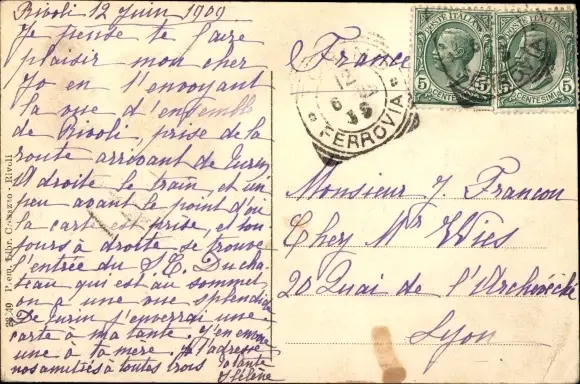 Rivoli 12 Juin 1909
Je pense te faire
plaisir mon cher
Jo en t'envoyant
la vue d'ensemble
de Rivoli, prise de la
route arrivant de Turin
A droite le train, et un
peu avant le point d'où
la carte est prise, et tou
jours à droite se trouve
l'entrée du Du cha
teau qui est au sommet
on a une vue splendide
De Turin j'enverrai une
carte à ma tante. J'en envoie
une à ta mère, à l'adresse
nos amitiés à toutes trois
ta tante
Hélène
Prem. Libr. - Rivoli
France
Monsieur J. Francou
Chez Mr Wies
20 Quai de l'Archevêché
Lyon
POSTE ITALIANE
5 CENTESIMI 5
POSTE ITALIANE
5 CENTESIMI 5
12
6
FERROVIA